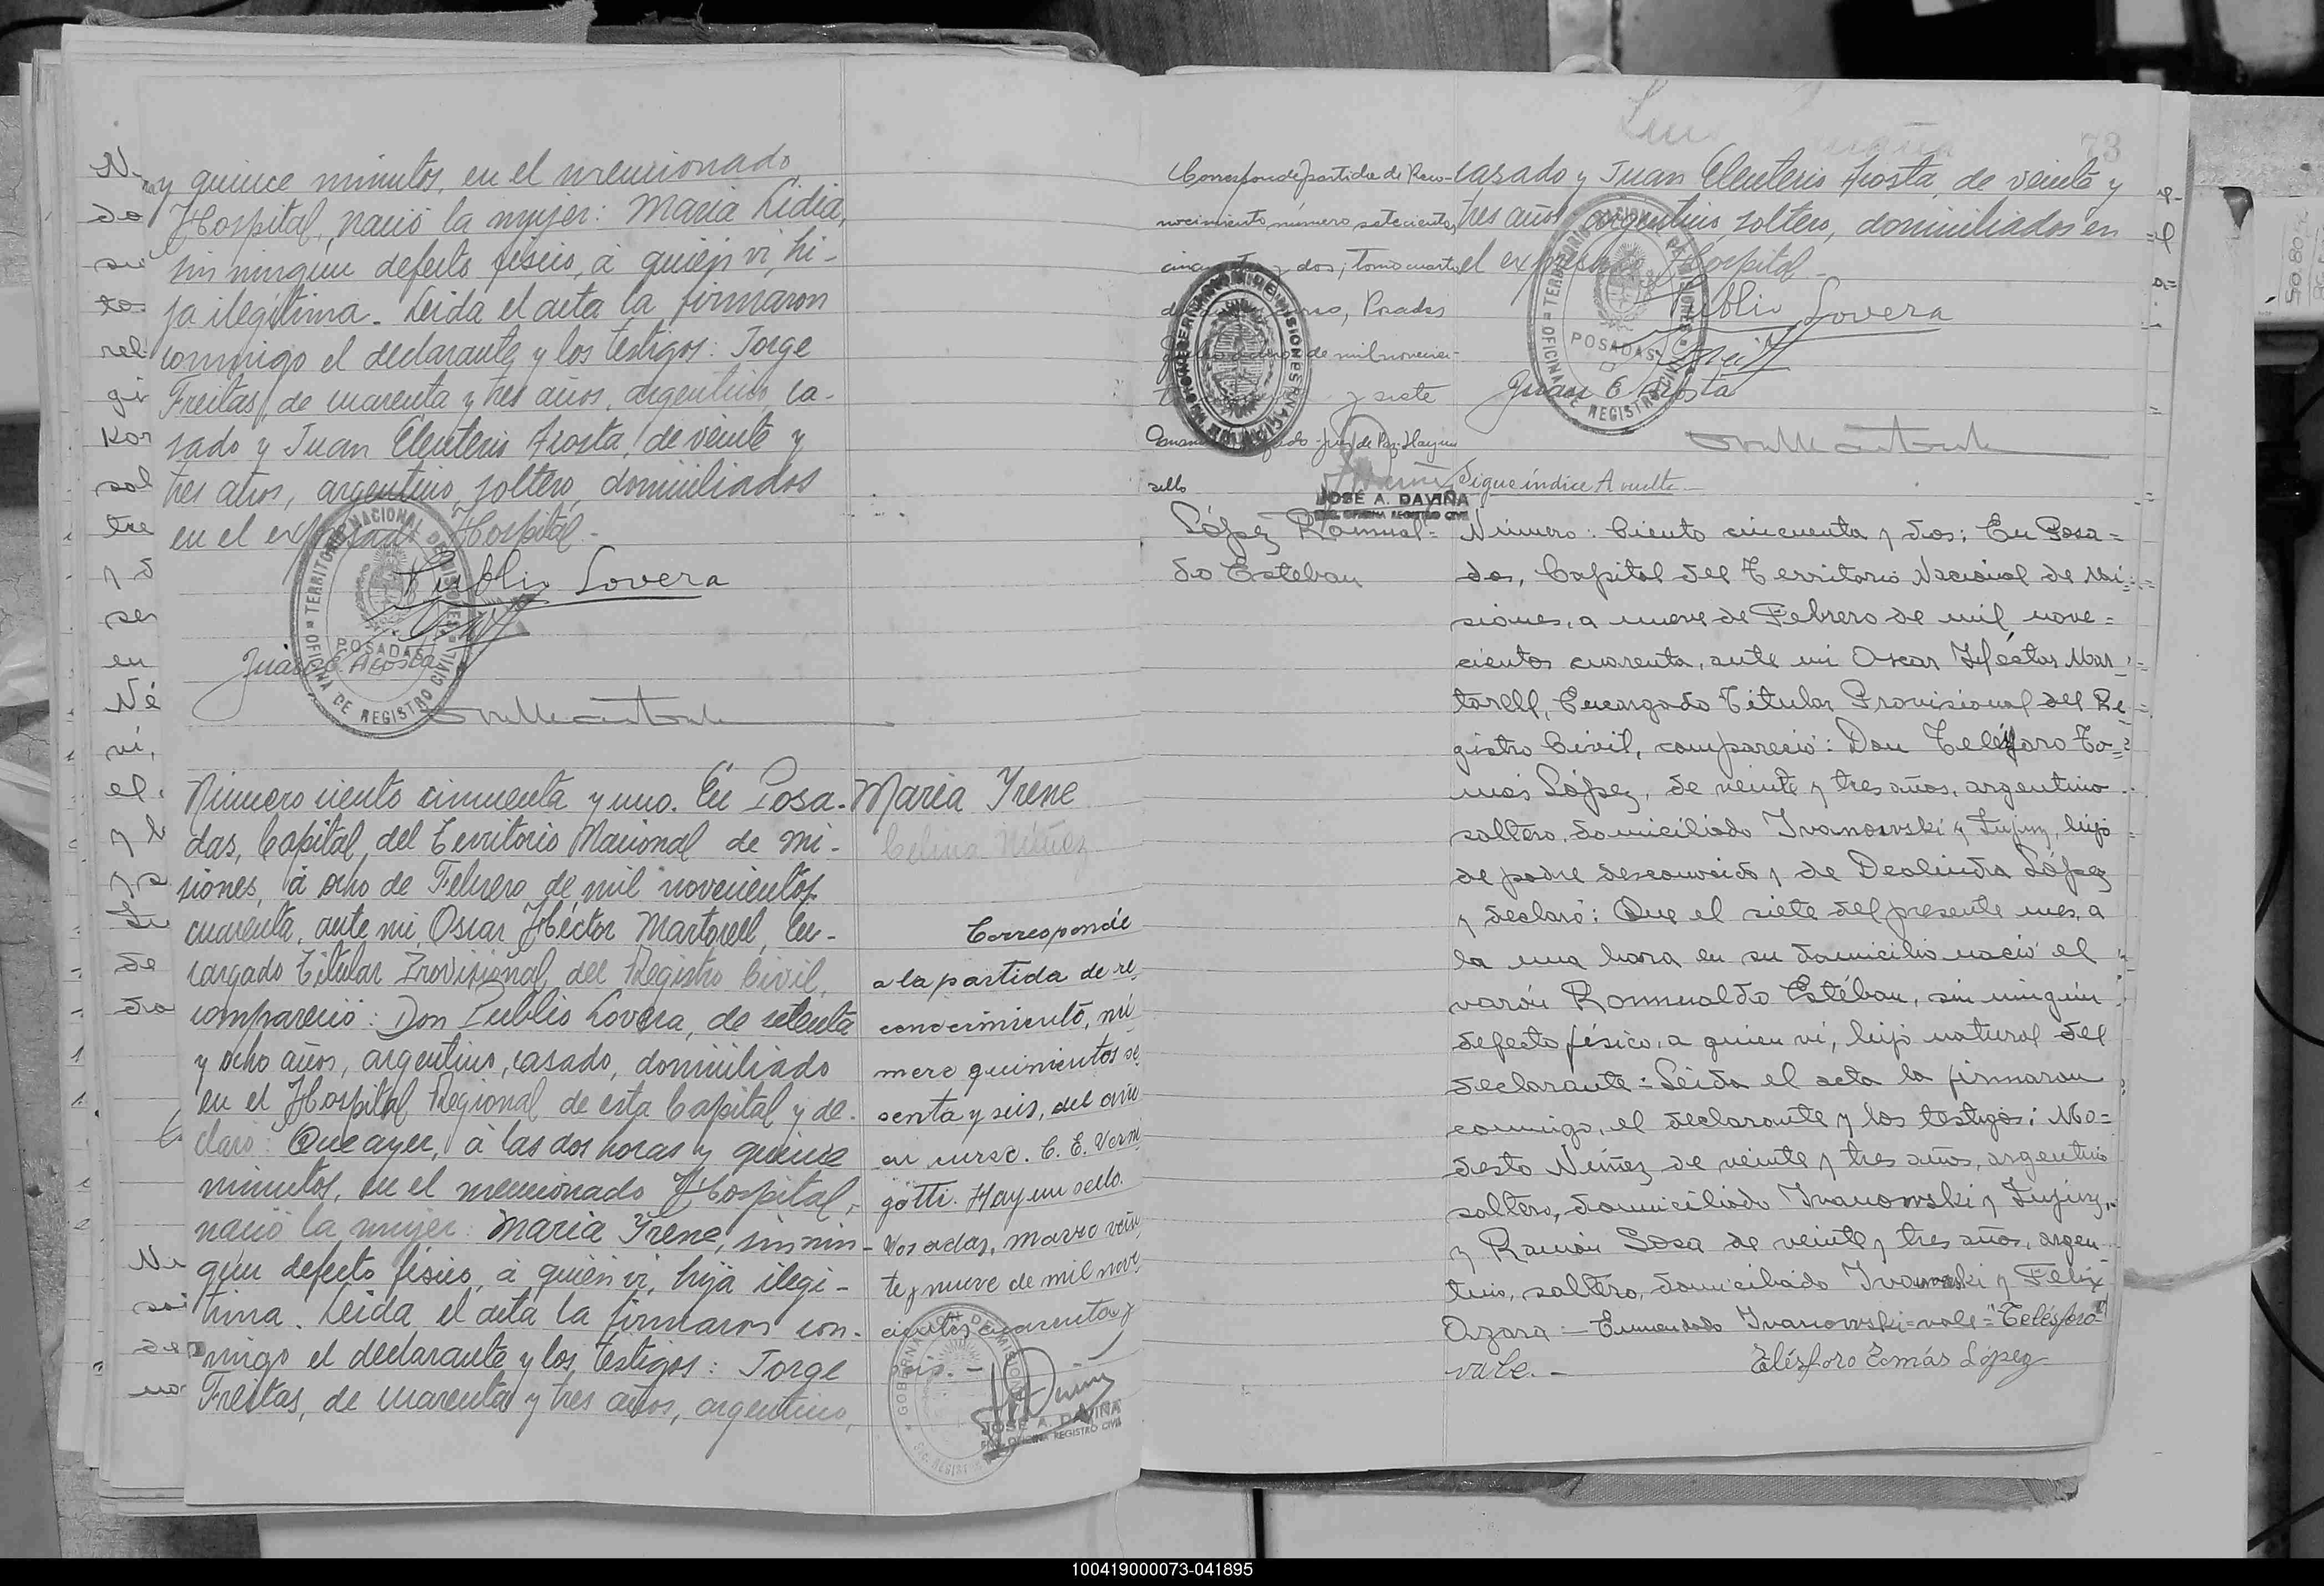 y quince minutos, en el mencionado
Hospital, nació la mujer: Maria Lidia,
sin ningún defecto físico, á quién vi, hi-
ja ilegítima. Leida el acta la firmaron
conmigo el declarante y los testigos: Jorge
Freitas, de cuarenta y tres años, argentino ca-
sado y Juan Eleuterio Acosta, de veinte y
tres años, argentino, soltero, domiciliados
en el expresado Hospital.-
Publio Lovera
Juan E. Acosta
TERRITORIO NACIONAL DE MISIONES
POSADAS
OFICINA DE REGISTRO CIVIL
Número ciento cincuenta y uno. En Posa-
das, Capital, del Territorio Nacional de Mi-
siones, á ocho de Febrero de mil novecientos
cuarenta, ante mi, Oscar Héctor Martorell, En-
cargado Titular Provisional del Registro Civil,
compareció: Don Publio Lovera, de setenta
y ocho años, argentino, casado, domiciliado
en el Hospital Regional de esta Capital y de-
claró: Que ayer, á las dos horas y quince
minutos, en el mencionado Hospital,
nació la mujer: Maria Yrene, sin nin-
gún defecto físico, á quién vi, hija ilegi-
tima. Leida el acta la firmaron con-
migo el declarante y los testigos: Jorge
Freitas, de cuarenta y tres años, argentino,
Maria Yrene
Celina Núñez
Corresponde
a la partida de re
conocimiento, nú
mero quinientos se
senta y seis, del año
en curso. C. E. Verm
gotti. Hay un sello.
Posadas, marzo vein
te y nueve de mil nove
cientos cuarenta y
seis.-
JOSÉ A. DAVIÑA
ENC. OFICINA REGISTRO CIVIL
73
Corresponde partida de Reco-
nocimiento número setecientos
cincuenta y dos; Tomo cuarto
Posadas
de mil novecien-
y siete
Juez de Paz. Hay un
sello
JOSÉ A. DAVIÑA
ENC. OFICINA REGISTRO CIVIL
casado y Juan Eleuterio Acosta, de veinte y
tres años, argentino, soltero, domiciliados en
el expresado Hospital.-
Publio Lovera
Juan E Acosta
TERRITORIO NACIONAL DE MISIONES
POSADAS
OFICINA DE REGISTRO CIVIL
Sigue índice A vuelta.-
López Romual=
do Esteban
Número: Ciento cincuenta y dos; En Posa=
das, Capital del Territorio Nacional de Mi=
siones, a nueve de Febrero de mil nove=
cientos cuarenta, ante mi Oscar Héctor Mar=
torell, Encargado Titular Provisional del Re=
gistro Civil, compareció: Don Telésforo To=
más López, de veinte y tres años, argentino
soltero, domiciliado Ivanowski y Jujuy, hijo
de padre desconocido y de Deolinda López
y declaró: Que el siete del presente mes, a
la una hora en su domicilio nació el
varón Romualdo Estéban, sin ningún
defecto físico, a quien vi, hijo natural del
declarante: Leida el acta la firmaron
conmigo, el declarante y los testigos: Mo=
desto Núñez de veinte y tres años, argentino
soltero, domiciliado Ivanowski y Jujuy,
y Ramón Sosa de veinte y tres años, argen
tino, soltero, domiciliado Ivanowski y Felix
Azara = Enmendado Ivanowski=vale="Telésforo"
vale.-
Telésforo Tomás López
100419000073-041895